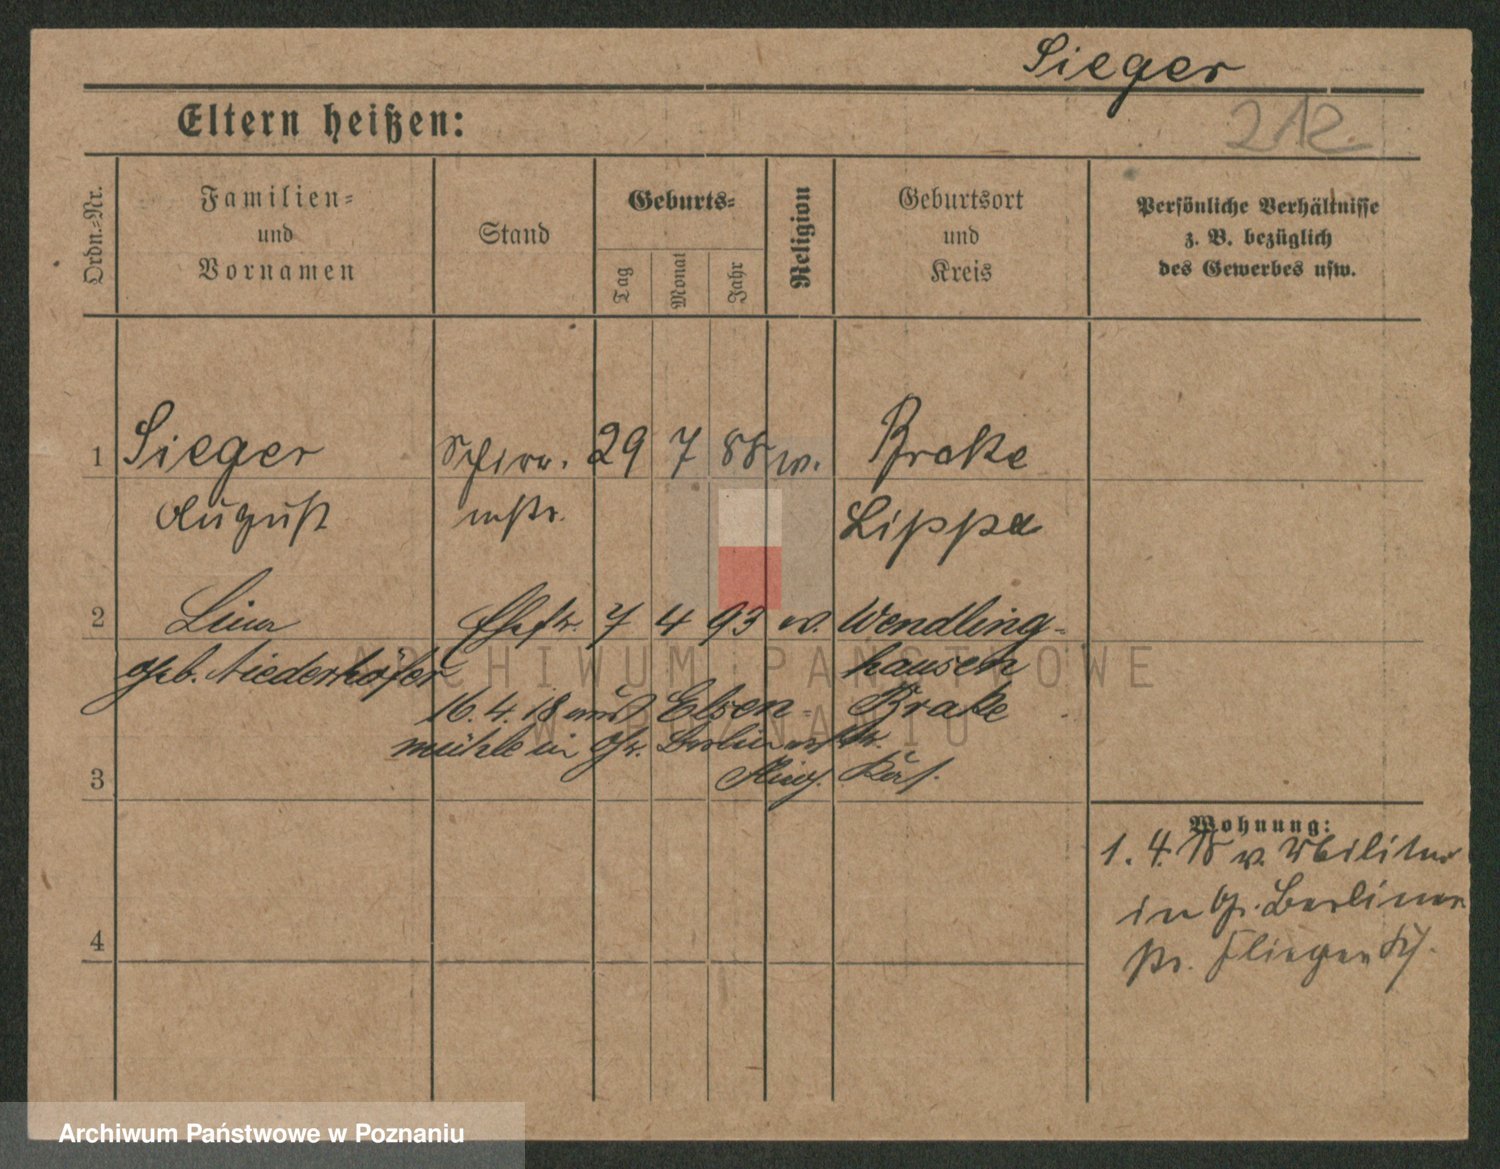 Sieger
212.
Eltern heißen:
Ordn.-Nr.
Familien-
und
Vornamen
Stand
Geburts-
Tag
Monat
Jahr
Religion
Geburtsort
und
Kreis
Persönliche Verhältnisse
z. B. bezüglich
des Gewerbes usw.
1 Sieger Schirr. 29 7 88 w. Brake
August mstr. Lippa
2 Lina Ehefr. 7 4 93 w. Wendling-
geb. Niederhöfer hausen
16.4.18 aus Elsen- Brake
mühle in Gr. Berlinerstr.
3
Flieg. Kas.
Wohnung:
1. 4. 18 v. Militär
in Gr. Berliner
str. Flieger
4
ARCHIWUM PAŃSTWOWE
W POZNANIU
Archiwum Państwowe w Poznaniu